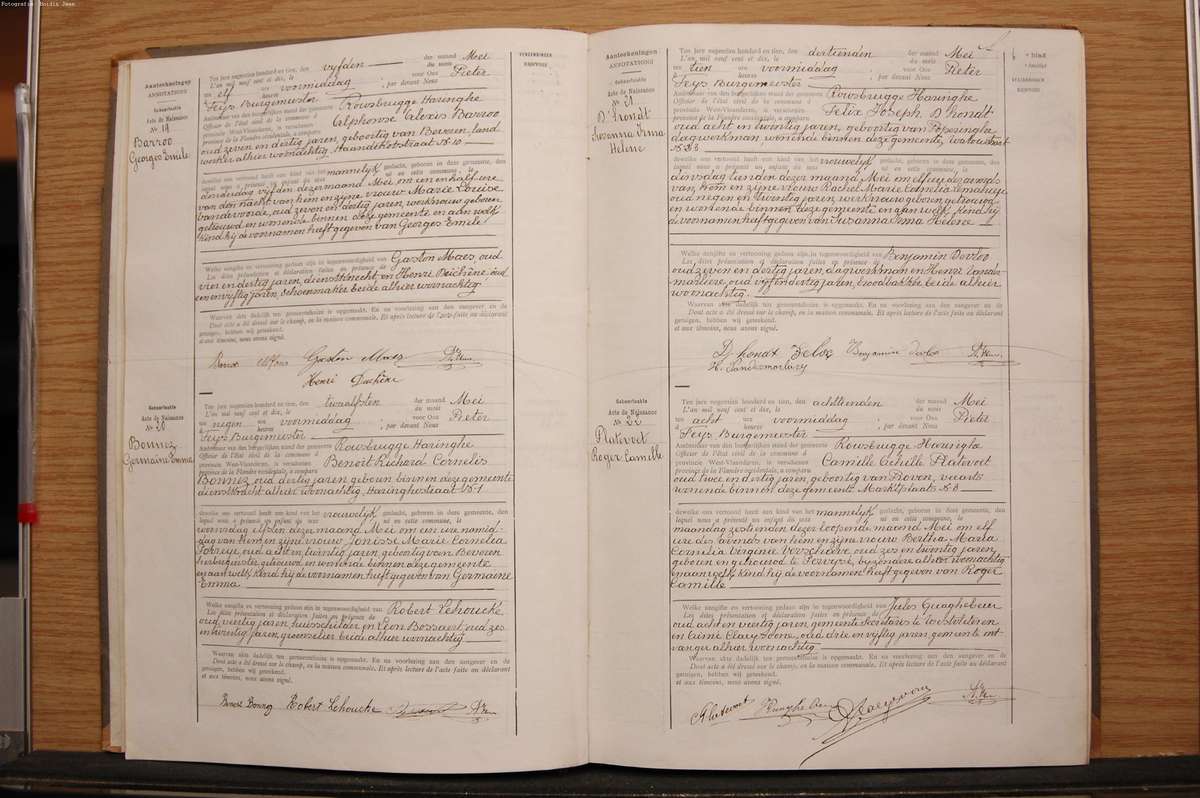 Fotografie: Boidin Jean
Aanteekeningen
ANNOTATIONS
Geboorteakte
Acte de Naissance
№ 19
Barroo
Georges Emile
VERZENDINGEN
RENVOIS
Ten jare negentien honderd en tien, den vyfden der maand Mei
L'an mil neuf cent et dix, le du mois
te elf ure voormiddag voor Ons Pieter
à heures ; par devant Nous
Feys Burgemeester
Ambtenaar van den burgerlijken stand der gemeente Rousbrugge Haringhe
Officier de l'état civil de la commune d
provincie West-Vlaanderen, is verschenen Alphonse Alexis Barroo
province de la Flandre occidentale, a comparu
oud zeven en dertig jaren, geboortig van Beveren, land
werker alhier woonachtig Haandekotstraat N. 10
dewelke ons vertoond heeft een kind van het mannelyk geslacht, geboren in deze gemeente, den
lequel nous a présenté un enfant du sexe né en cette commune, le
donderdag vyfden dezer maand Mei om een en half ure
van den nacht van hem en zyne vrouw Marie Louise
Vandevoorde, oud zeven en dertig jaren, werkvrouw geboren
getrouwd en wonende binnen deze gemeente en aan welk
kind hij de voornamen heeft gegeven van Georges Emile
Welke aangifte en vertooning gedaan zijn in tegenwoordigheid van Gaston Maes, oud
Les dites présentation et déclaration faites en présence de
vier en dertig jaren, dienstknecht, en Henri Duchêne oud
een en vyftig jaren, schoenmaker beide alhier woonachtig
Waarvan akte dadelijk ten gemeentehuize is opgemaakt. En na voorlezing aan den aangever en de
Dont acte a été dressé sur le champ, en la maison communale. Et après lecture de l'acte faite au déclarant
getuigen, hebben wij geteekend.
et aux témoins, nous avons signé.
Gaston Maes
Henri Duchêne
Geboorteakte
Acte de Naissance
№ 20
Bonnez
Germaine Emma
Ten jare negentien honderd en tien, den twaalfsten der maand Mei
L'an mil neuf cent et dix, le du mois
te negen ure voormiddag voor Ons Pieter
à heures ; par devant Nous
Feys Burgemeester
Ambtenaar van den burgerlijken stand der gemeente Rousbrugge Haringhe
Officier de l'état civil de la commune d
provincie West-Vlaanderen, is verschenen Benoit Richard Cornelis
province de la Flandre occidentale, a comparu
Bonnez, oud dertig jaren, geboren binnen deze gemeente
dienstknecht alhier woonachtig, Haringhestraat N. 1
dewelke ons vertoond heeft een kind van het vrouwelyk geslacht, geboren in deze gemeente, den
lequel nous a présenté un enfant du sexe né en cette commune, le
woensdag elfsten dezer maand Mei om een ure namid
dag van hem en zyne vrouw Jonisse Marie Cornelia
oud acht en twintig jaren, geboortig van Beveren
herbergierster getrouwd en wonende binnen deze gemeente
en aan welk kind hij de voornamen heeft gegeven van Germaine
Emma
Welke aangifte en vertooning gedaan zijn in tegenwoordigheid van Robert Lehoucke
Les dites présentation et déclaration faites en présence de
oud veertig jaren, huisschilder en Leon Bossaert, oud zes
en veertig jaren, beide alhier woonachtig
Waarvan akte dadelijk ten gemeentehuize is opgemaakt. En na voorlezing aan den aangever en de
Dont acte a été dressé sur le champ, en la maison communale. Et après lecture de l'acte faite au déclarant
getuigen, hebben wij geteekend.
et aux témoins, nous avons signé.
Benoit Bonnez Robert Lehoucke
Aanteekeningen
ANNOTATIONS
Geboorteakte
Acte de Naissance
№ 21
D'hondt
Susanna Irma
Helene
6e blad
feuillet
VERZENDINGEN
RENVOIS
Ten jare negentien honderd en tien, den dertienden der maand Mei
L'an mil neuf cent et dix, le du mois
te tien ure voormiddag voor Ons Pieter
à heures ; par devant Nous
Feys Burgemeester
Ambtenaar van den burgerlijken stand der gemeente Rousbrugge Haringhe
Officier de l'état civil de la commune d
provincie West-Vlaanderen, is verschenen Felix Joseph D'hondt
province de la Flandre occidentale, a comparu
oud acht en twintig jaren, geboortig van Poperinghe
dagwerkman, wonende binnen deze gemeente, Watoustraat
N. 33
dewelke ons vertoond heeft een kind van het vrouwelyk geslacht, geboren in deze gemeente, den
lequel nous a présenté un enfant du sexe né en cette commune, le
dinsdag tienden dezer maand Mei om elf ure des avonds
van hem en zyne vrouw Rachel Marie Cornelia Lemahieu
oud negen en twintig jaren, werkvrouw geboren getrouwd
en wonende binnen deze gemeente en aan welk kind hij
de voornamen heeft gegeven van Susanna Irma Helene
Welke aangifte en vertooning gedaan zijn in tegenwoordigheid van Benjamin Devloo
Les dites présentation et déclaration faites en présence de
oud zeven en dertig jaren, dagwerkman en Henri Lande
marliere, oud vyf en dertig jaren, broodbakker beide alhier
woonachtig.
Waarvan akte dadelijk ten gemeentehuize is opgemaakt. En na voorlezing aan den aangever en de
Dont acte a été dressé sur le champ, en la maison communale. Et après lecture de l'acte faite au déclarant
getuigen, hebben wij geteekend.
et aux témoins, nous avons signé.
D'hondt Felix Benjamin Devloo
Geboorteakte
Acte de Naissance
№ 22
Platevoet
Roger Camille
Ten jare negentien honderd en tien, den achttienden der maand Mei
L'an mil neuf cent et dix, le du mois
te acht ure voormiddag voor Ons Pieter
à heures ; par devant Nous
Feys Burgemeester
Ambtenaar van den burgerlijken stand der gemeente Rousbrugge Haringhe
Officier de l'état civil de la commune d
provincie West-Vlaanderen, is verschenen Camille Achille Platevoet
province de la Flandre occidentale, a comparu
oud twee en dertig jaren, geboortig van Proven, veearts
wonende binnen deze gemeente Marktplaats N. 8
dewelke ons vertoond heeft een kind van het mannelyk geslacht, geboren in deze gemeente, den
lequel nous a présenté un enfant du sexe né en cette commune, le
maandag zestienden dezer loopende maand Mei om elf
ure des avonds van hem en zijne vrouw Bertha Maria
Cornelia Virginie Verschaeve oud zes en twintig jaren,
geboren en getrouwd te byzondere alhier woonachtig
en aan welk kind hij de voornamen heeft gegeven van Roger
Camille
Welke aangifte en vertooning gedaan zijn in tegenwoordigheid van Jules Quaghebeur
Les dites présentation et déclaration faites en présence de
oud acht en veertig jaren gemeente Secretaris te
en oud drie en vyftig jaren gemeente ont
vanger alhier woonachtig
Waarvan akte dadelijk ten gemeentehuize is opgemaakt. En na voorlezing aan den aangever en de
Dont acte a été dressé sur le champ, en la maison communale. Et après lecture de l'acte faite au déclarant
getuigen, hebben wij geteekend.
et aux témoins, nous avons signé.
Platevoet